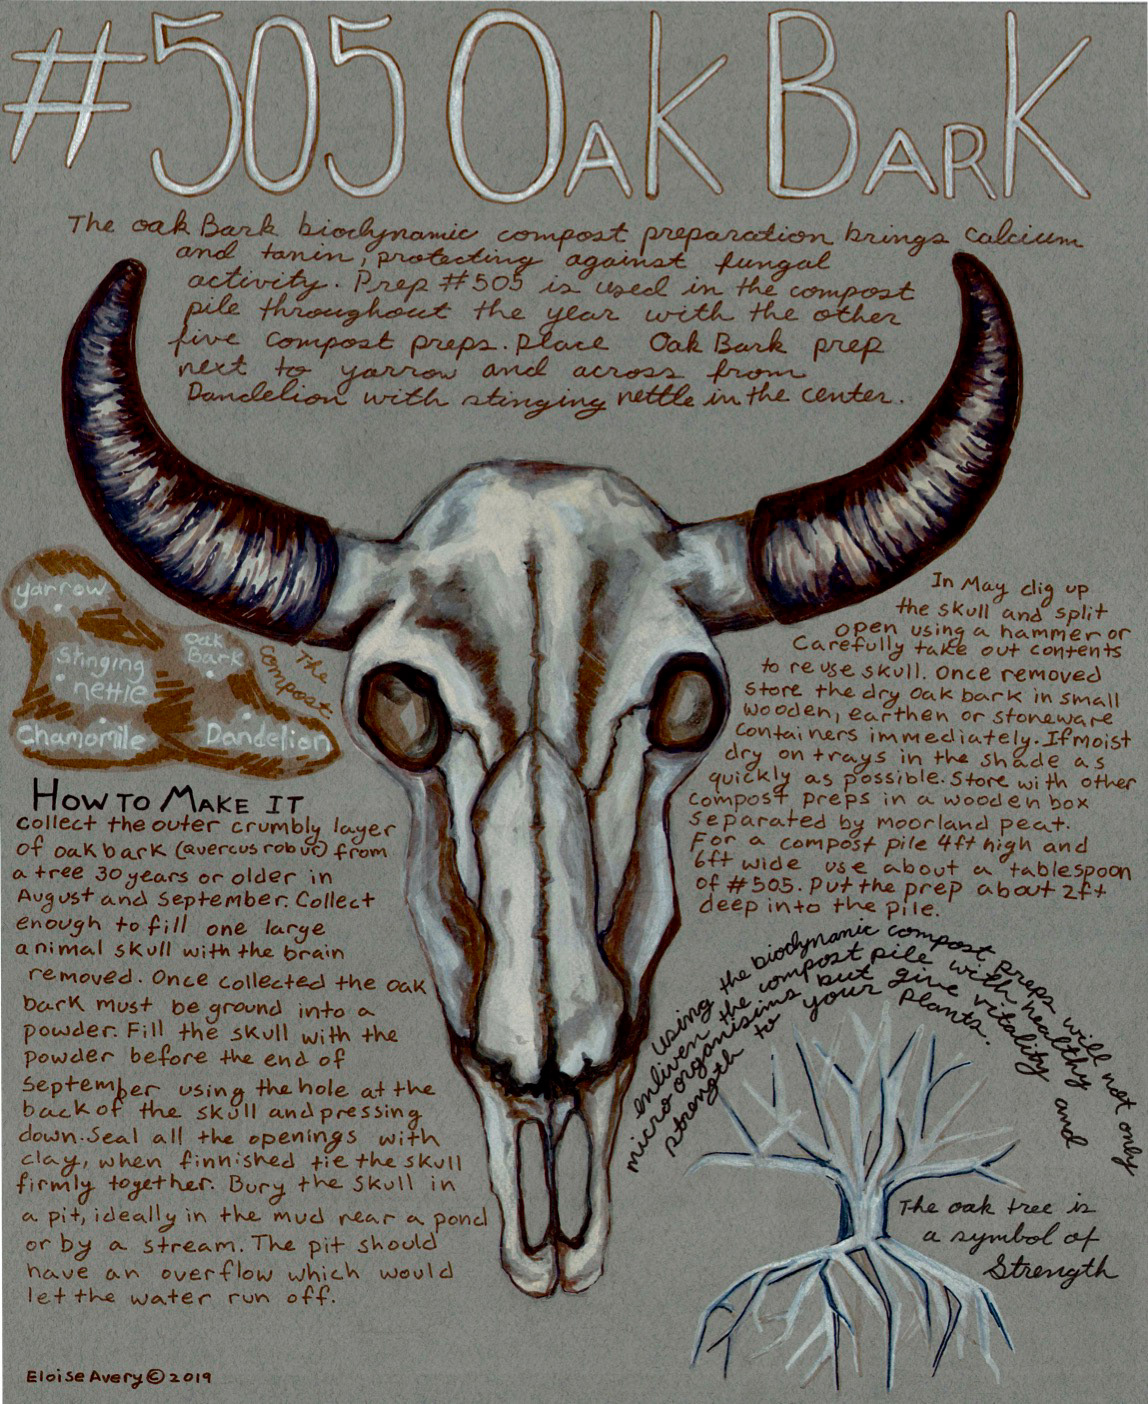 #505 Oak Bark
The oak Bark biodynamic compost preparation brings calcium
and tanin, protecting against fungal
activity. Prep #505 is used in the compost
pile throughout the year with the other
five compost preps. Place Oak Bark prep
next to yarrow and across from
Dandelion with stinging nettle in the center.
yarrow
Oak
Bark
Stinging
nettle
Chamomile
Dandelion
The
compost
How to Make it
collect the outer crumbly layer
of oak bark (quercus robur) from
a tree 30 years or older in
August and September. Collect
enough to fill one large
animal skull with the brain
removed. Once collected the oak
bark must be ground into a
powder. Fill the skull with the
powder before the end of
September using the hole at the
back of the skull and pressing
down. Seal all the openings with
clay, when finnished tie the skull
firmly together. Bury the skull in
a pit, ideally in the mud near a pond
or by a stream. The pit should
have an overflow which would
let the water run off.
In May dig up
the skull and split
open using a hammer or
Carefully take out contents
to reuse skull. Once removed
store the dry oak bark in small
wooden, earthen or stoneware
containers immediately. If moist
dry on trays in the shade as
quickly as possible. Store with other
compost preps in a wooden box
separated by moorland peat.
For a compost pile 4ft high and
6ft wide use about a tablespoon
of #505. Put the prep about 2ft
deep into the pile.
using the biodynamic compost preps will not only
enliven the compost pile with healthy
micro organisims but give vitality and
strength to your plants.
The oak tree is
a symbol of
Strength
Eloise Avery © 2019